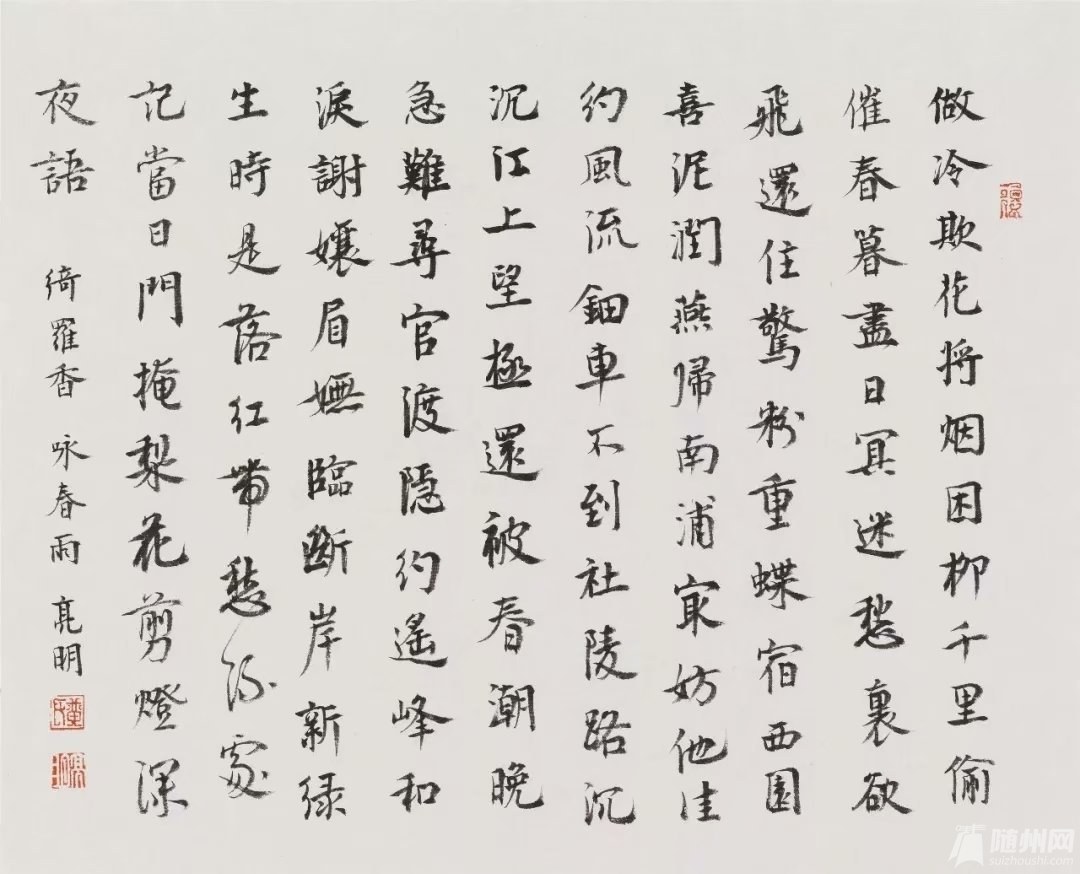 做冷欺花将烟困柳千里偷
催春暮盡日冥迷愁裏欲
飛還住驚粉重蝶宿西園
喜泥潤燕歸南浦㝡妨他佳
約風流鈿車不到社陵路沉
沉江上望極還被春潮晚
急難尋官渡隱約遙峰和
淚謝孃眉嫵臨斷岸新緑
生時是落紅帶愁流處
記當日門掩梨花剪燈深
夜語 綺羅香 咏春雨 亮明
随州网
suizhoushi.com